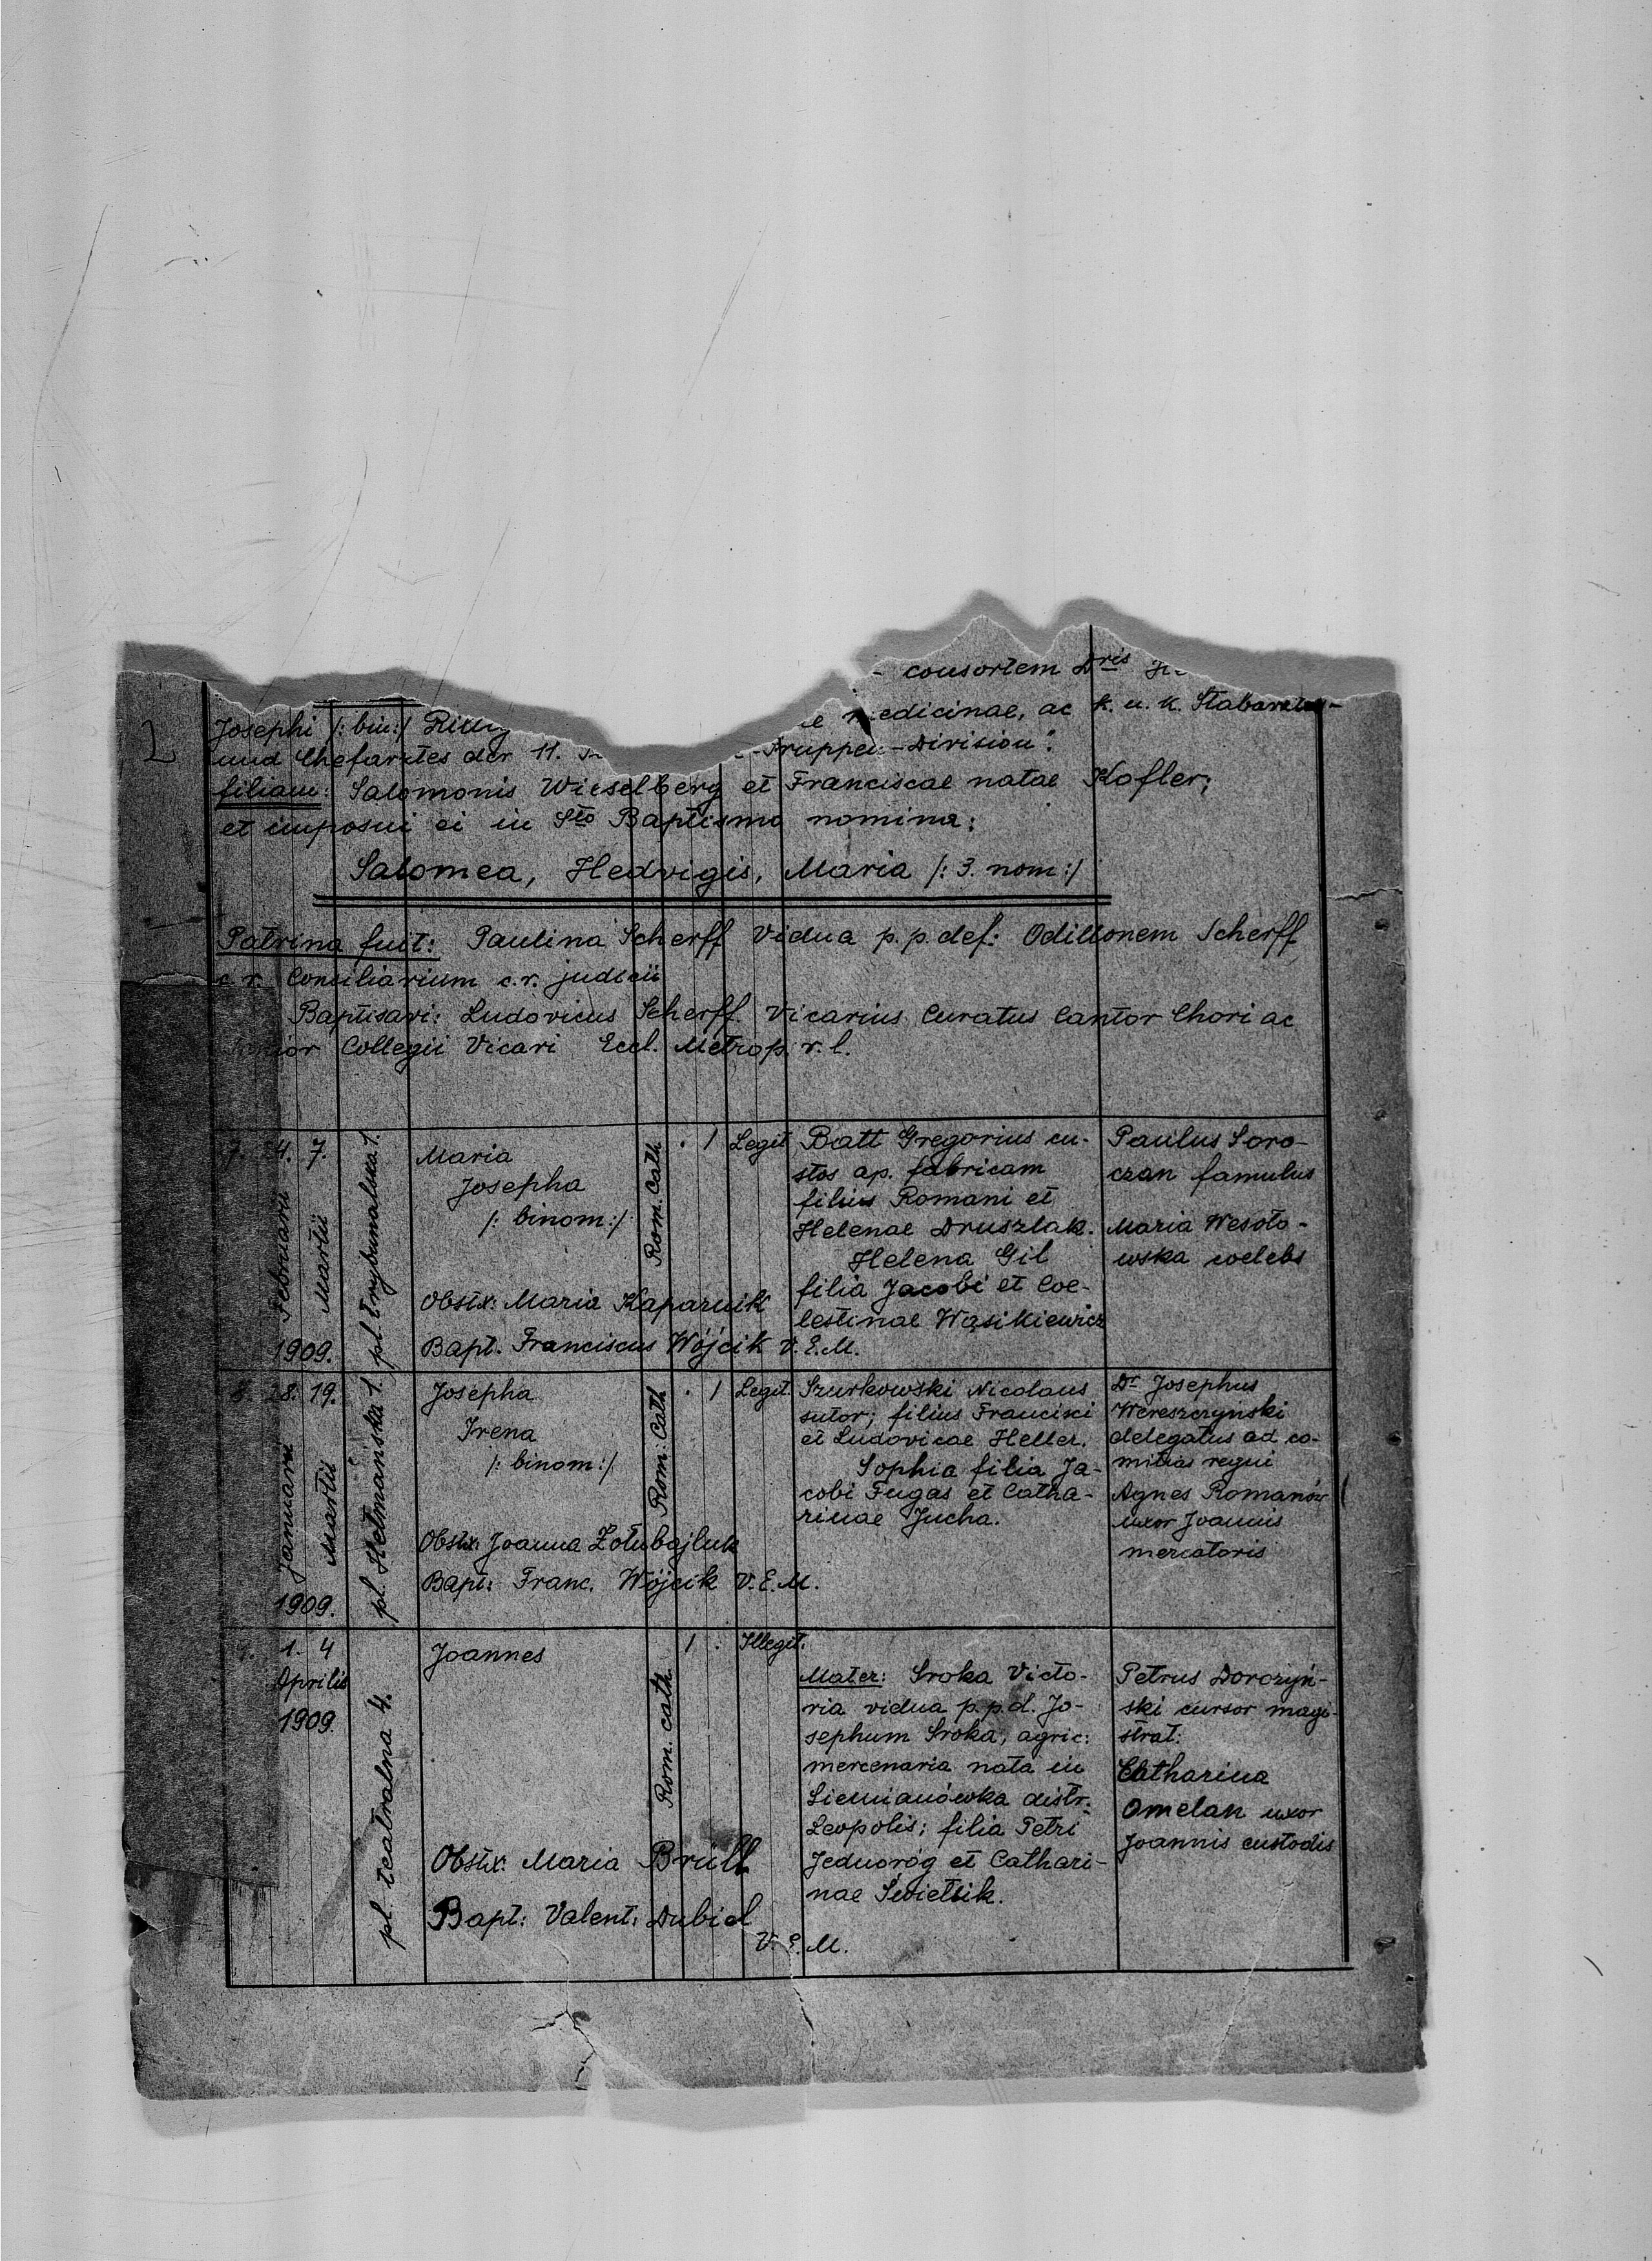 consortem Dris
Josephi /: bin:/
medicinae, ac k. u. k. Stabsarztes-
und Chefarztes der 11. -Truppen-Division".
filiam: Salomonis Wieselberg et Franciscae natae Kofler;
et imposui ei in Sto Baptismo nomina:
Salomea, Hedvigis, Maria /: 3. nom:/
Patrina fuit: Paulina Scherff Vidua p. p. def: Odillonem Scherff
c. r. Consiliarium c. r. judicii
Baptisavi: Ludovicus Scherff Vicarius Curatus Cantor Chori ac
Collegii Vicari Eccl. Metrop. r. l.
7. 24. 7.
Februarii
Martii
1909.
pl. Trybunalska 1.
Maria
Josepha
/: binom:/
Rom. Cath.
. 1 Legit.
Obstx: Maria Kaparnik
Bapt. Franciscus Wójcik V. E. M.
Batt Gregorius cu-
stos ap. fabricam
filius Romani et
Helenae Druszlak.
Helena Gil
filia Jacobi et Coe-
lestinae Wąsikiewicz
Paulus Soro-
czan famulus
Maria Wesoło-
wska coelebs
8. 28. 19.
Januarii
Martii
1909.
pl. Hetmańska 1.
Josepha
Irena
/: binom:/
Rom: Cath.
. 1 Legit.
Obstx. Joanna Zołubajluk
Bapt: Franc. Wójcik V. E. M.
Szurkowski Nicolaus
sutor; filius Francisci
et Ludovicae Heller.
Sophia filia Ja-
cobi Fugas et Catha-
rinae Jucha.
Dr Josephus
Wereszczyński
delegatus ad co-
mitias regni
Agnes Romanów
uxor Joannis
mercatoris
9. 1. 4
Aprilis
1909.
pl. teatralna 4.
Joannes
Rom. cath.
1 . Illegit.
Obstx: Maria Brüll
Bapt: Valent. Dubiel
V. E. M.
Mater: Sroka Victo-
ria vidua p. p. d. Jo-
sephum Sroka, agric:
mercenaria nata in
Siemianówka distr.
Leopolis; filia Petri
Jednoróg et Cathari-
nae Świetlik.
Petrus Dorożyń-
ski cursor magi-
strat:
Catharina
Omelan uxor
Joannis custodis